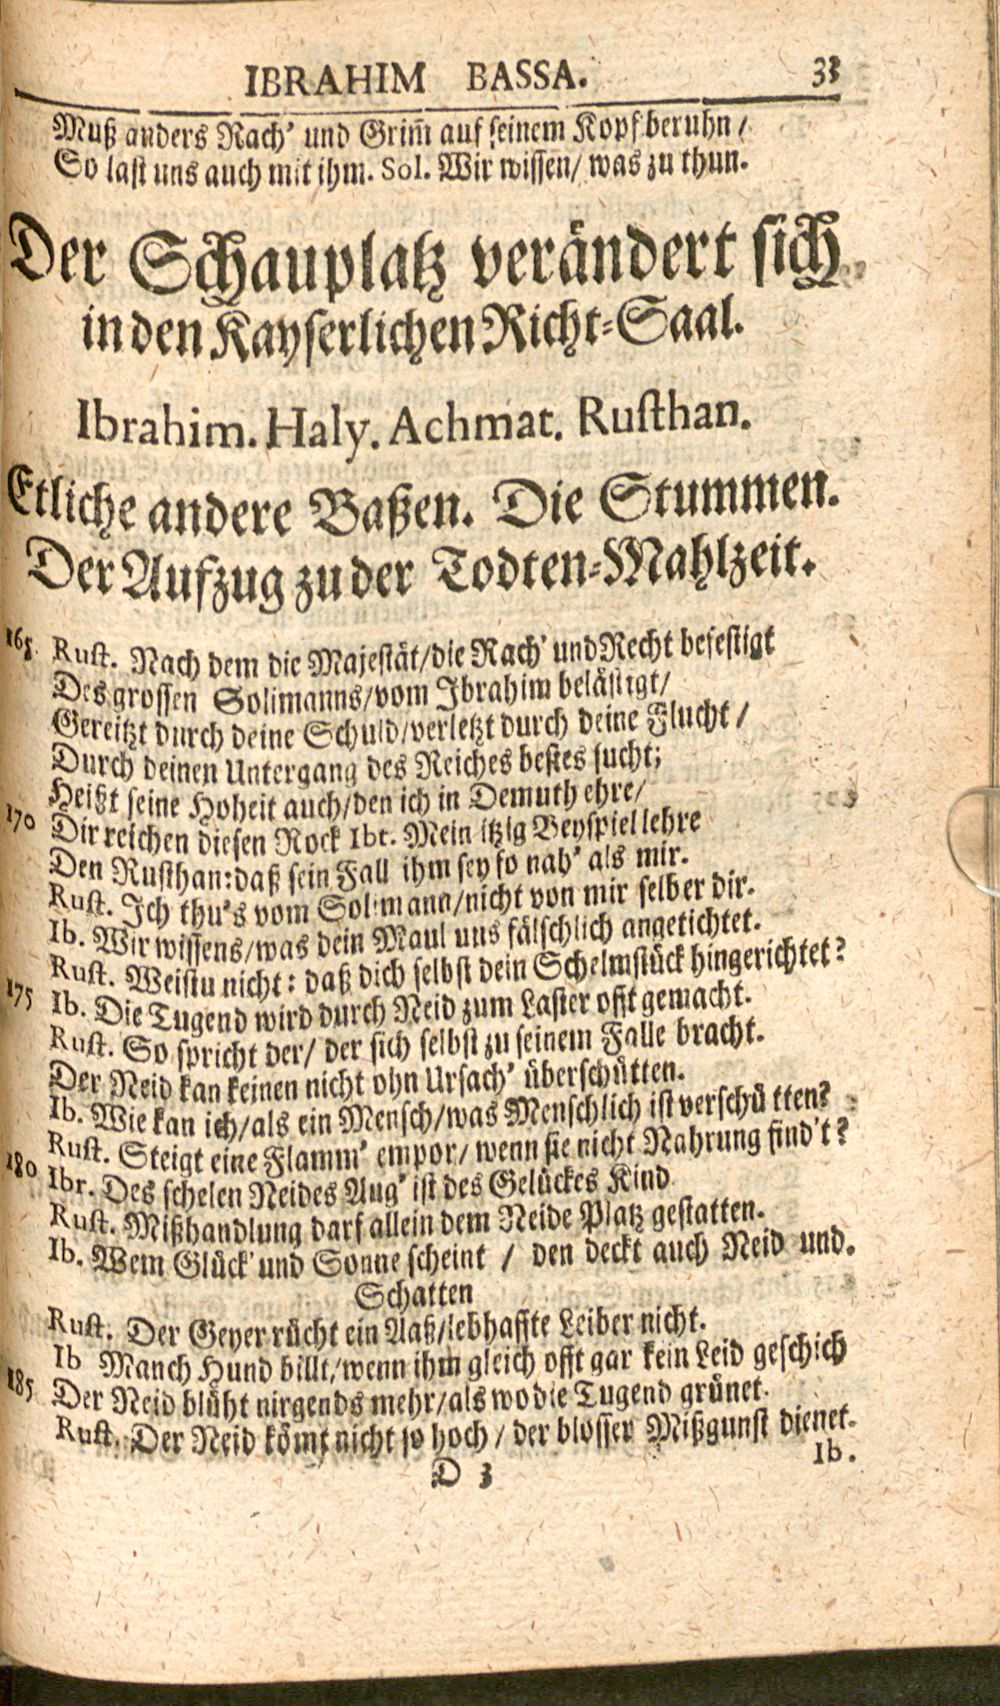 IBRAHIM BASSA. 33
Muß anders Rach' und Grim̃ auf seinem Kopf beruhn /
So last uns auch mit ihm. Sol. Wir wissen / was zu thun.
Der Schauplatz verändert sich
in den Kayserlichen Richt-Saal.
Ibrahim. Haly. Achmat. Rusthan.
Etliche andere Baßen. Die Stummen.
Der Aufzug zu der Todten-Mahlzeit.
165. Rust. Nach dem die Majestät / die Rach' und Recht befestigt
Des grossen Solimanns / vom Ibrahim belästigt /
Gereitzt durch deine Schuld / verletzt durch deine Flucht /
Durch deinen Untergang des Reiches bestes sucht;
Heißt seine Hoheit auch / den ich in Demuth ehre /
170 Dir reichen diesen Rock Ibr. Mein itzig Beyspiel lehre
Den Rusthan: daß sein Fall ihm sey so nah' als mir.
Rust. Ich thu's vom Solimann / nicht von mir selber dir.
Ib. Wir wissens / was dein Maul uns fälschlich angetichtet.
Rust. Weistu nicht: daß dich selbst dein Schelmstück hingerichtet?
175 Ib. Die Tugend wird durch Neid zum Laster offt gemacht.
Rust. So spricht der / der sich selbst zu seinem Falle bracht.
Der Neid kan keinen nicht ohn Ursach' überschütten.
Ib. Wie kan ich / als ein Mensch / was Menschlich ist verschütten?
Rust. Steigt eine Flamm' empor / wenn sie nicht Nahrung find't?
180 Ibr. Des schelen Neides Aug' ist des Gelückes Kind
Rust. Mißhandlung darf allein dem Neide Platz gestatten.
Ib. Wem Glück' und Sonne scheint / den deckt auch Neid und.
Schatten
Rust. Der Geyer rücht ein Aaß / lebhaffte Leiber nicht.
Ib Manch Hund billt / wenn ihm gleich offt gar kein Leid geschich
185 Der Neid blüht nirgends mehr / als wo die Tugend grünet.
Rust. Der Neid kömt nicht so hoch / der blosser Mißgunst dienet.
D 3 Ib.